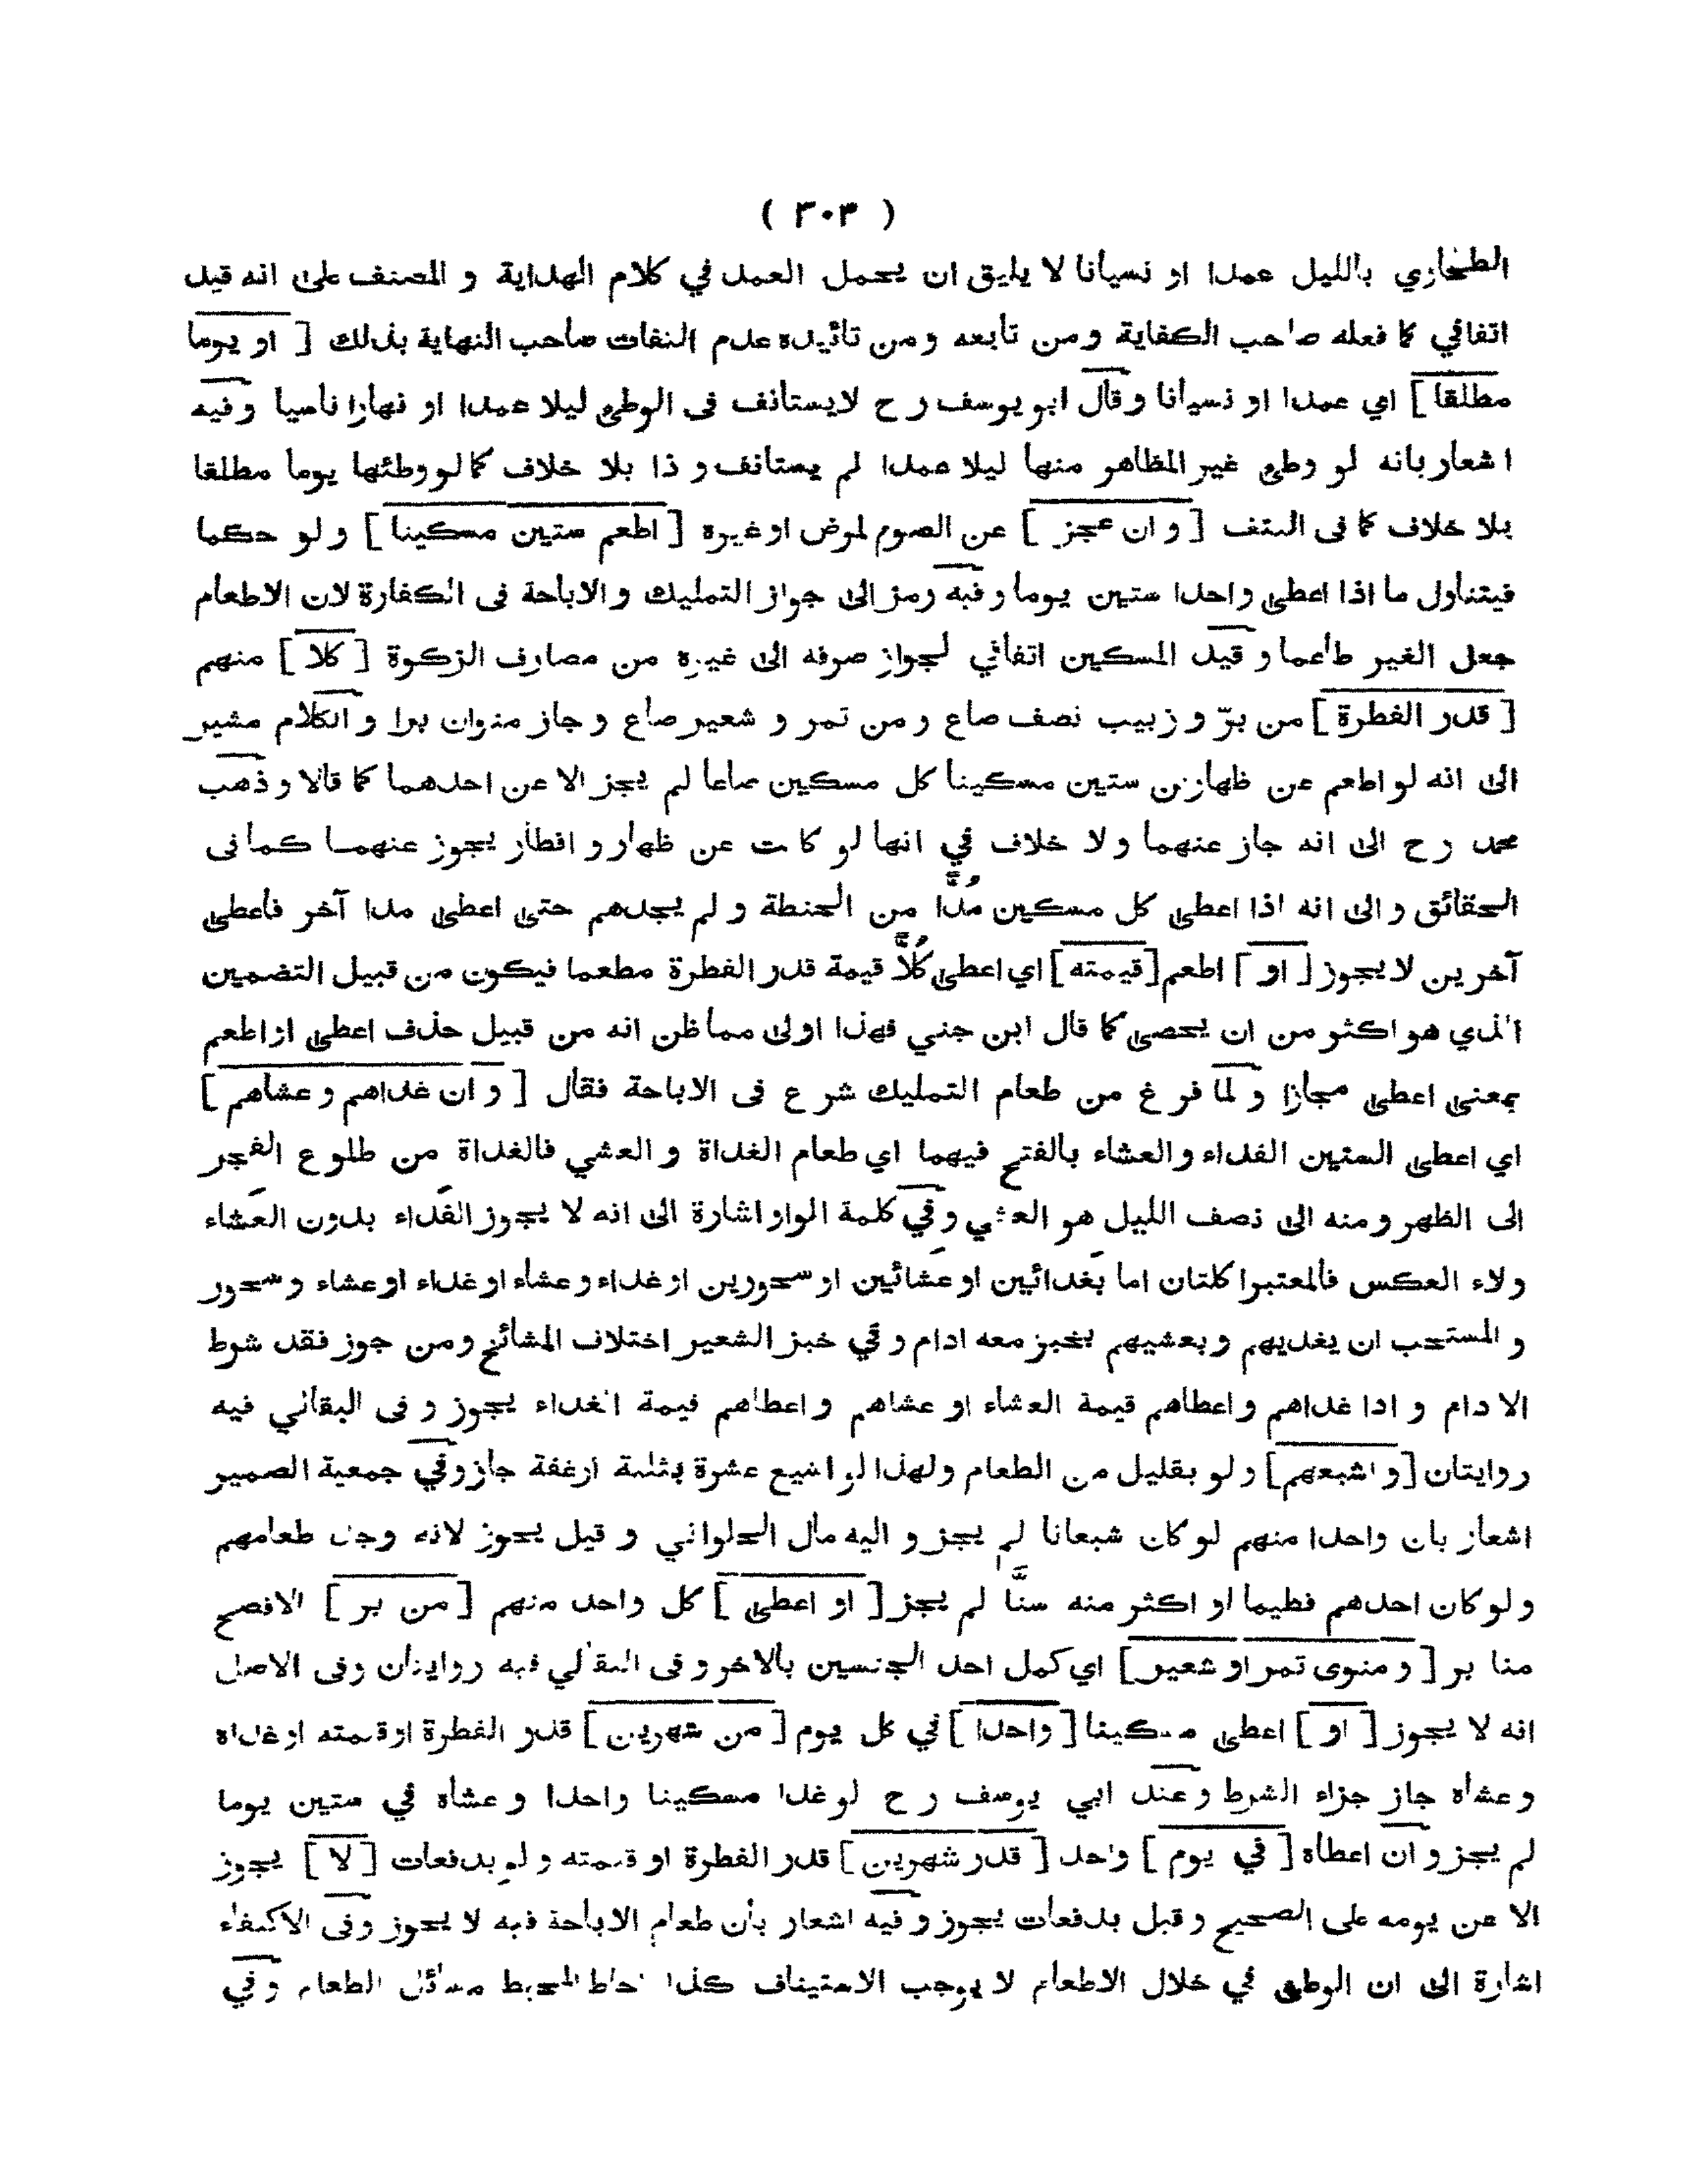 ( ٣٠٣ )
الطحاوي بالليل عمدا او نسيانا لا يليق ان يحمل العمد في كلام الهداية و المصنف على انه قيد
اتفاقي كما فعله صاحب الكفاية ومن تابعه ومن تائيده عدم التفات صاحب النهاية بذلك [ او يوما
مطلقا ] اي عمدا او نسيانا وقال ابو يوسف رح لايستانف فى الوطى ليلا عمدا او نهارا ناسيا وفيه
اشعار بانه لو وطى غير المظاهر منها ليلا عمدا لم يستانف و ذا بلا خلاف كما لو وطئها يوما مطلقا
بلا خلاف كما فى النتف [ و ان عجز ] عن الصوم لمرض او غيره [ اطعم ستين مسكينا ] و لو حكما
فيتناول ما اذا اعطى واحدا ستين يوما و فيه رمز الى جواز التمليك و الاباحة فى الكفارة لان الاطعام
جعل الغير طاعما و قيد المسكين اتفاقي لجواز صرفه الى غيره من مصارف الزكوة [ كلا ] منهم
[ قدر الفطرة ] من برّ و زبيب نصف صاع و من تمر و شعير صاع و جاز منوان برا و الكلام مشير
الى انه لو اطعم عن ظهارين ستين مسكينا كل مسكين صاعا لم يجز الا عن احدهما كما قالا و ذهب
محمد رح الى انه جاز عنهما و لا خلاف في انها لو كانت عن ظهار و افطار يجوز عنهما كما فى
الحقائق و الى انه اذا اعطى كل مسكين مُدًّا من الحنطة و لم يجدهم حتى اعطى مدا آخر فاعطى
آخرين لا يجوز [ او ] اطعم [قيمته] اي اعطى كُلًّا قيمة قدر الفطرة مطعما فيكون من قبيل التضمين
الذي هو اكثر من ان يحصى كما قال ابن جني فهذا اولى مما ظن انه من قبيل حذف اعطى او اطعم
بمعنى اعطى مجازا و لما فرغ من طعام التمليك شرع فى الاباحة فقال [ و ان غداهم و عشاهم ]
اي اعطى الستين الغداء و العشاء بالفتح فيهما اي طعام الغداة و العشي فالغداة من طلوع الفجر
الى الظهر و منه الى نصف الليل هو العشي و في كلمة الواو اشارة الى انه لا يجوز الغَداء بدون العَشاء
و لاء العكس فالمعتبر اكلتان اما بغدائين او عَشائين او سحورين او غداء و عشاء او غداء او عشاء و سحور
و المستحب ان يغديهم و يعشيهم بخبز معه ادام و في خبز الشعير اختلاف المشائخ و من جوز فقد شرط
الادام و اذا غداهم و اعطاهم قيمة العشاء او عشاهم و اعطاهم قيمة الغداء يجوز و فى البقالي فيه
روايتان [و اشبعهم] و لو بقليل من الطعام و لهذا لو اشبع عشرة بثلثة ارغفة جاز و في جمعية الضمير
اشعار بان واحدا منهم لو كان شبعانا لم يجز و اليه مال الحلواني و قيل يجوز لانه وجد طعامهم
و لو كان احدهم فطيما او اكثر منه سنًّا لم يجز [ او اعطى ] كل واحد منهم [ من بر ] الافصح
منا بر [ و منوى تمر او شعير ] اي كمل احد الجنسين بالاخر و فى البقالي فيه روايتان وفى الاصل
انه لا يجوز [ او ] اعطى مسكينا [ واحدا ] في كل يوم [ من شهرين ] قدر الفطرة او قيمته او غداه
و عشاه جاز جزاء الشرط و عند ابي يوسف رح لو غدا مسكينا واحدا و عشاه في ستين يوما
لم يجز و ان اعطاه [ في يوم ] واحد [ قدر شهرين ] قدر الفطرة او قيمته و لو بدفعات [ لا ] يجوز
الا عن يومه على الصحيح و قيل بدفعات يجوز و فيه اشعار بأن طعام الاباحة فيه لا يجوز و فى الاكتفاء
اشارة الى ان الوطى في خلال الاطعام لا يوجب الاستيناف كذا احاط المحيط مسائل الطعام و في